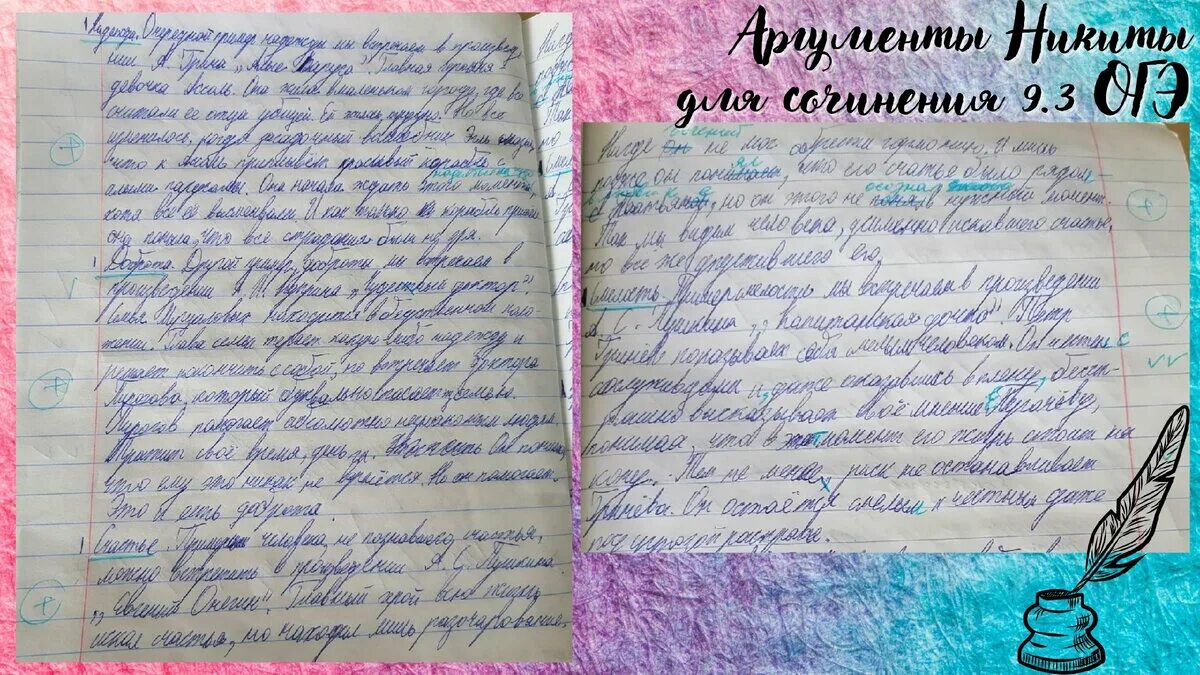 Аргументы Никиты
для сочинения 9.3 ОГЭ
Надежда. Очередной пример надежды мы встречаем в произведе-
нии А. Грина "Алые Паруса". Главная героиня
девочка Ассоль. Она жила в маленьком городе, где все
считали ее отца убийцей. Ей жилось трудно. Но всё
изменилось, когда сказочный волшебник Эгль сказал,
что к ней приплывёт красивый корабль с
алыми парусами. Она начала ждать этого момента,
хотя все её высмеивали. И как только корабль приплыл
она поняла, что все страдания были не зря.
Доброта. Другой пример доброты мы встречаем в
произведении А. И. Куприна "Чудесный доктор".
Семья Мерцаловых находится в бедственном поло-
жении. Глава семьи теряет какую либо надежду и
решает покончить с собой, но встречает доктора
Пирогова, который буквально спасает семью.
Пирогов помогает абсолютно незнакомым людям.
Тратит своё время, деньги. Он понимает,
что ему это никак не вернётся. Но он помогает.
Это и есть доброта
Счастье. Пример человека, не познавшего счастья,
можно встретить в произведении А. С. Пушкина
"Евгений Онегин". Главный герой всю жизнь
искал счастья, но находил лишь разочарование.
Евгений
Нигде не мог обрести гармонию. И лишь
позже он понял, что его счастье было рядом-
с Татьяной, но он этого не осознал в нужный момент.
Так мы видим человека, длительно искавшего счастье,
но все же упустившего его.
Смелость. Пример смелости мы встречаем в произведении
А. С. Пушкина "Капитанская дочка". Пётр
Гринёв показывает себя смелым человеком. Он честен с
сослуживцами и, даже оказавшись в плену, бесст-
рашно высказывает своё мнение Е. Пугачёву,
понимая, что в этот момент его жизнь стоит на
кону. Тем не менее, риск не останавливает
Гринёва. Он остаётся смелым и честным даже
под угрозой расправы.